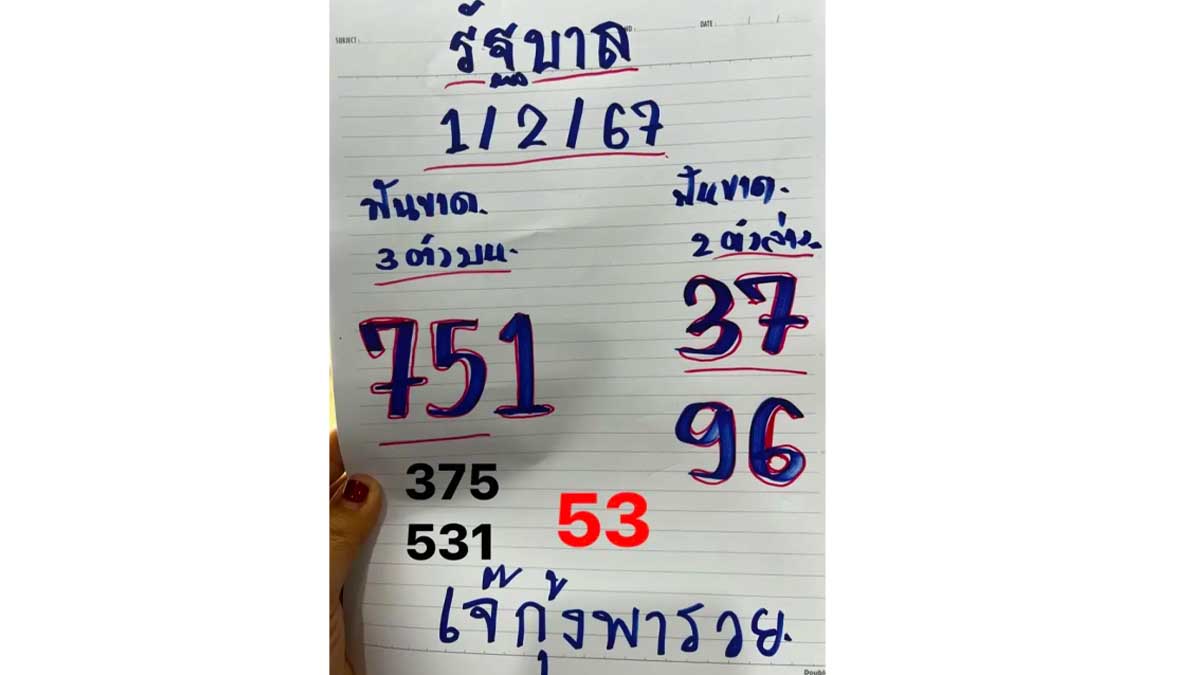 SUBJECT :
NO :
DATE : / /
รัฐบาล
1/2/67
ฟันขาด.
3 ตัวบน.
751
ฟันขาด.
2 ตัวล่าง.
37
96
375
531
53
เจ๊กุ้งพารวย.
Double